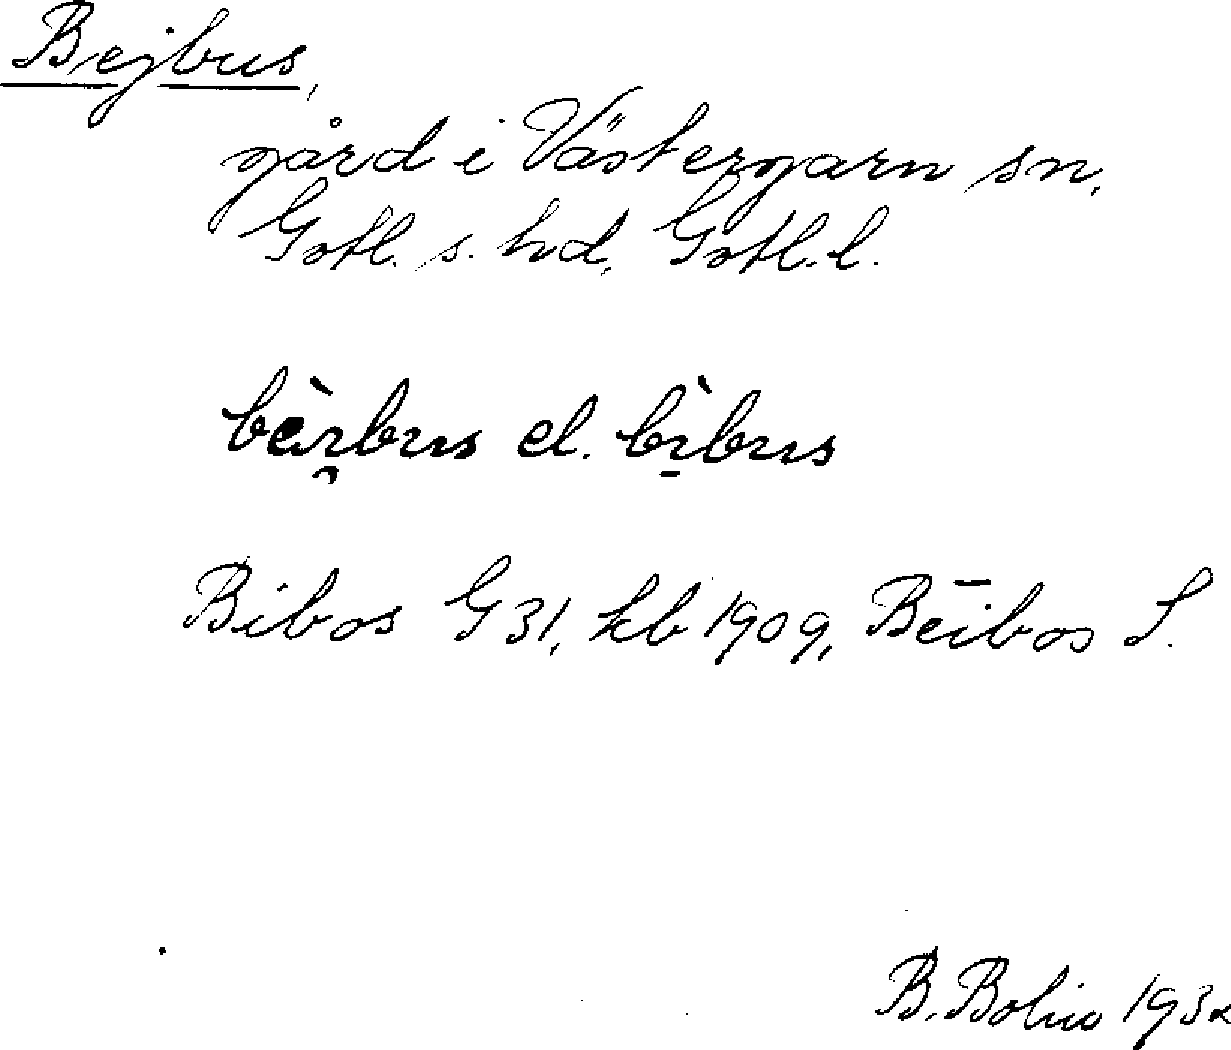 Bejbus,
gård i Västergarn sn,
Gotl. s. hd, Gotl. l.
bèi̯bus el. bì̠bus
Bibos G 31, kb 1909, Bēibos S.
B. Bolin 1932